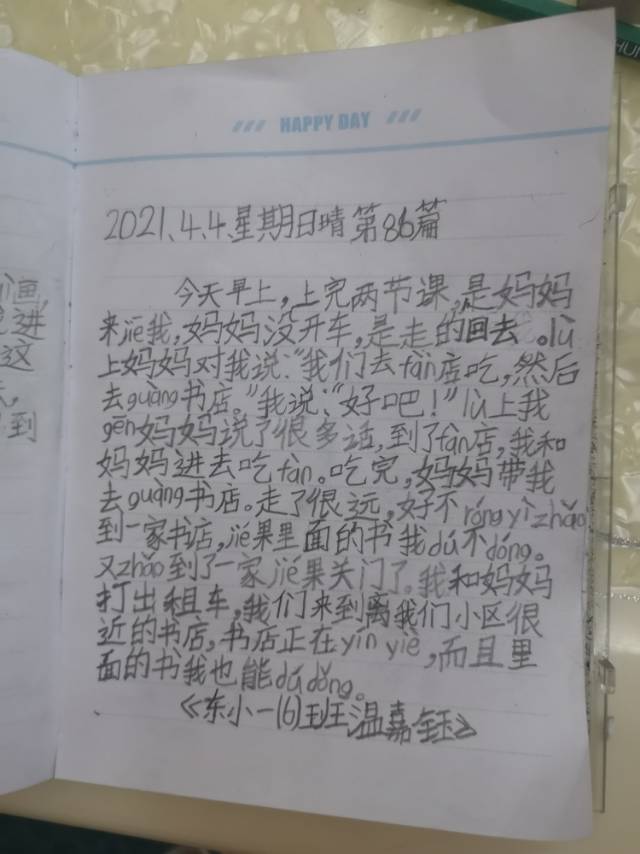 HAPPY DAY
2021.4.4.星期日晴第86篇
今天早上,上完两节课,是妈妈
来jiē我,妈妈没开车,是走的回去。lù
上妈妈对我说:“我们去fàn店吃,然后
去guàng书店。”我说:“好吧!”lù上我
gēn妈妈说了很多话,到了fàn店,我和
妈妈进去吃fàn。吃完,妈妈带我
去guàng书店。走了很远,好不róng yì zhǎo
到一家书店,jié果里面的书我dú不dóng。
又zhǎo到了一家jié果关门了。我和妈妈
打出租车,我们来到离我们小区很
近的书店,书店正在yín yiè,而且里
面的书我也能dú dǒng。
《东小一(6)班温嘉钰》
画
进
这
到
HUI